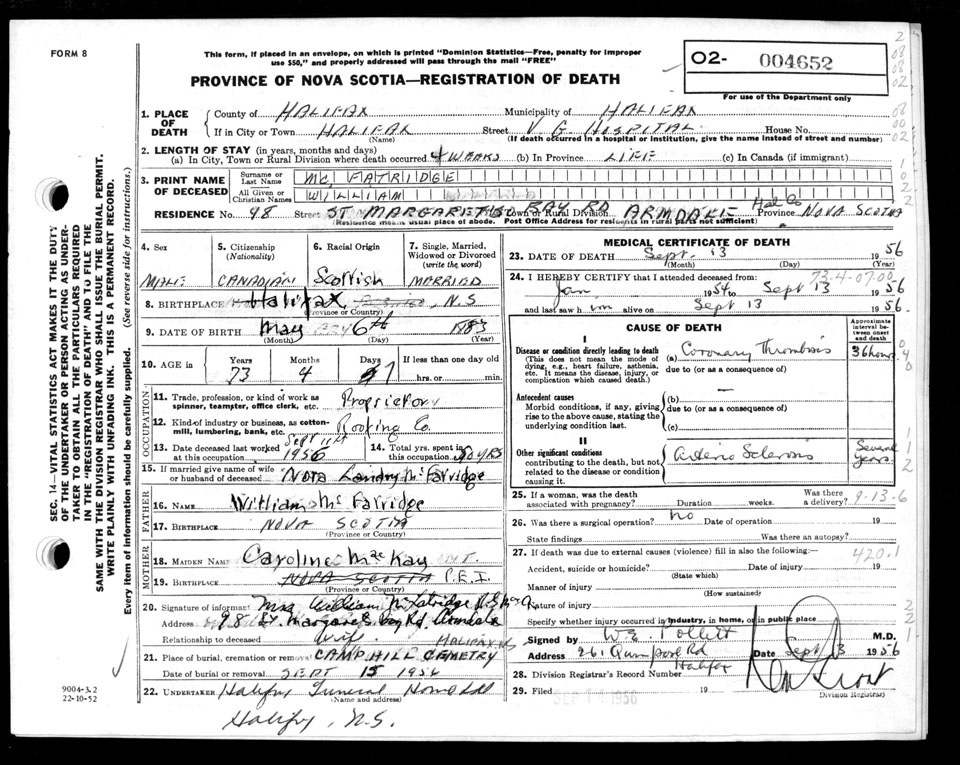 FORM 8
This form, if placed in an envelope, on which is printed "Dominion Statistics—Free, penalty for improper
use $50," and properly addressed will pass through the mail "FREE"
PROVINCE OF NOVA SCOTIA—REGISTRATION OF DEATH
O2- 004652
For use of the Department only
1. PLACE OF DEATH
County of HALIFAX Municipality of HALIFAX
If in City or Town HALIFAX Street V. G. HOSPITAL House No.
(Name) (If death occurred in a hospital or institution, give the name instead of street and number)
2. LENGTH OF STAY (in years, months and days)
(a) In City, Town or Rural Division where death occurred 4 WEEKS (b) In Province LIFE (c) In Canada (if immigrant)
3. PRINT NAME OF DECEASED
Surname or Last Name MC FATRIDGE
All Given or Christian Names WILLIAM
RESIDENCE No. 98 Street ST MARGARETS BAY RD Town or Rural Division ARMDALE Hal Co Province NOVA SCOTIA
(Residence means usual place of abode. Post Office Address for residents in rural parts not sufficient)
4. Sex
MALE
5. Citizenship (Nationality)
CANADIAN
6. Racial Origin
Scottish
7. Single, Married, Widowed or Divorced (write the word)
MARRIED
8. BIRTHPLACE Halifax N.S
(Province or Country)
9. DATE OF BIRTH May 6th 1883
(Month) (Day) (Year)
10. AGE in Years Months Days If less than one day old
73 4 7 hrs. or min.
OCCUPATION
11. Trade, profession, or kind of work as spinner, teamster, office clerk, etc. Proprietor
12. Kind of industry or business, as cotton-mill, lumbering, bank, etc. Roofing Co.
13. Date deceased last worked at this occupation Sept 11th 1956
14. Total yrs. spent in this occupation 50 YRS
15. If married give name of wife or husband of deceased Nora Landry McFatridge
FATHER
16. NAME William McFatridge
17. BIRTHPLACE NOVA SCOTIA
MOTHER
18. MAIDEN NAME Caroline MacKay
19. BIRTHPLACE NOVA SCOTIA P.E.I.
(Province or Country)
20. Signature of informant Mrs William McFatridge
Address 98 St. Margarets Bay Rd. Armdale
Relationship to deceased Wife. HALIFAX NS
21. Place of burial, cremation or removal CAMP HILL CEMETRY
Date of burial or removal SEPT 15 1956
22. UNDERTAKER Halifax Funeral Home Ltd
(Name and address)
Halifax, N.S.
MEDICAL CERTIFICATE OF DEATH
23. DATE OF DEATH Sept. 13 1956
(Month) (Day) (Year)
73-4-07.00
24. I HEREBY CERTIFY that I attended deceased from:
Jan 1954 to Sept 13 1956
and last saw him alive on Sept 13 1956.
CAUSE OF DEATH
Approximate interval between onset and death
I
Disease or condition directly leading to death (a) Coronary Thrombosis 36 hours
(This does not mean the mode of dying, e.g., heart failure, asthenia, etc. It means the disease, injury, or complication which caused death.)
due to (or as a consequence of)
Antecedent causes (b) —
Morbid conditions, if any, giving rise to the above cause, stating the underlying condition last.
due to (or as a consequence of)
(c)
II
Other significant conditions Arterio Sclerosis Several years.
contributing to the death, but not related to the disease or condition causing it.
25. If a woman, was the death associated with pregnancy? Duration weeks. Was there a delivery?
9-13-6
26. Was there a surgical operation? no Date of operation 19
State findings Was there an autopsy?
27. If death was due to external causes (violence) fill in also the following: 420.1
Accident, suicide or homicide? Date of injury 19
(State which)
Manner of injury
(How sustained)
Nature of injury
Specify whether injury occurred in industry, in home, or in public place
Signed by W.E. Pollett M.D.
Address 261 Quinpool Rd Halifax Date Sept 13 1956
28. Division Registrar's Record Number
29. Filed SEP 14 1956 19
Division Registrar
SEC. 14—VITAL STATISTICS ACT MAKES IT THE DUTY
OF THE UNDERTAKER OR PERSON ACTING AS UNDER-
TAKER TO OBTAIN ALL THE PARTICULARS REQUIRED
IN THE "REGISTRATION OF DEATH" AND TO FILE THE
SAME WITH THE DIVISION REGISTRAR WHO SHALL ISSUE THE BURIAL PERMIT.
WRITE PLAINLY WITH UNFADING INK. THIS IS A PERMANENT RECORD.
Every item of information should be carefully supplied. (See reverse side for instructions.)
9004-3.2
22-10-52